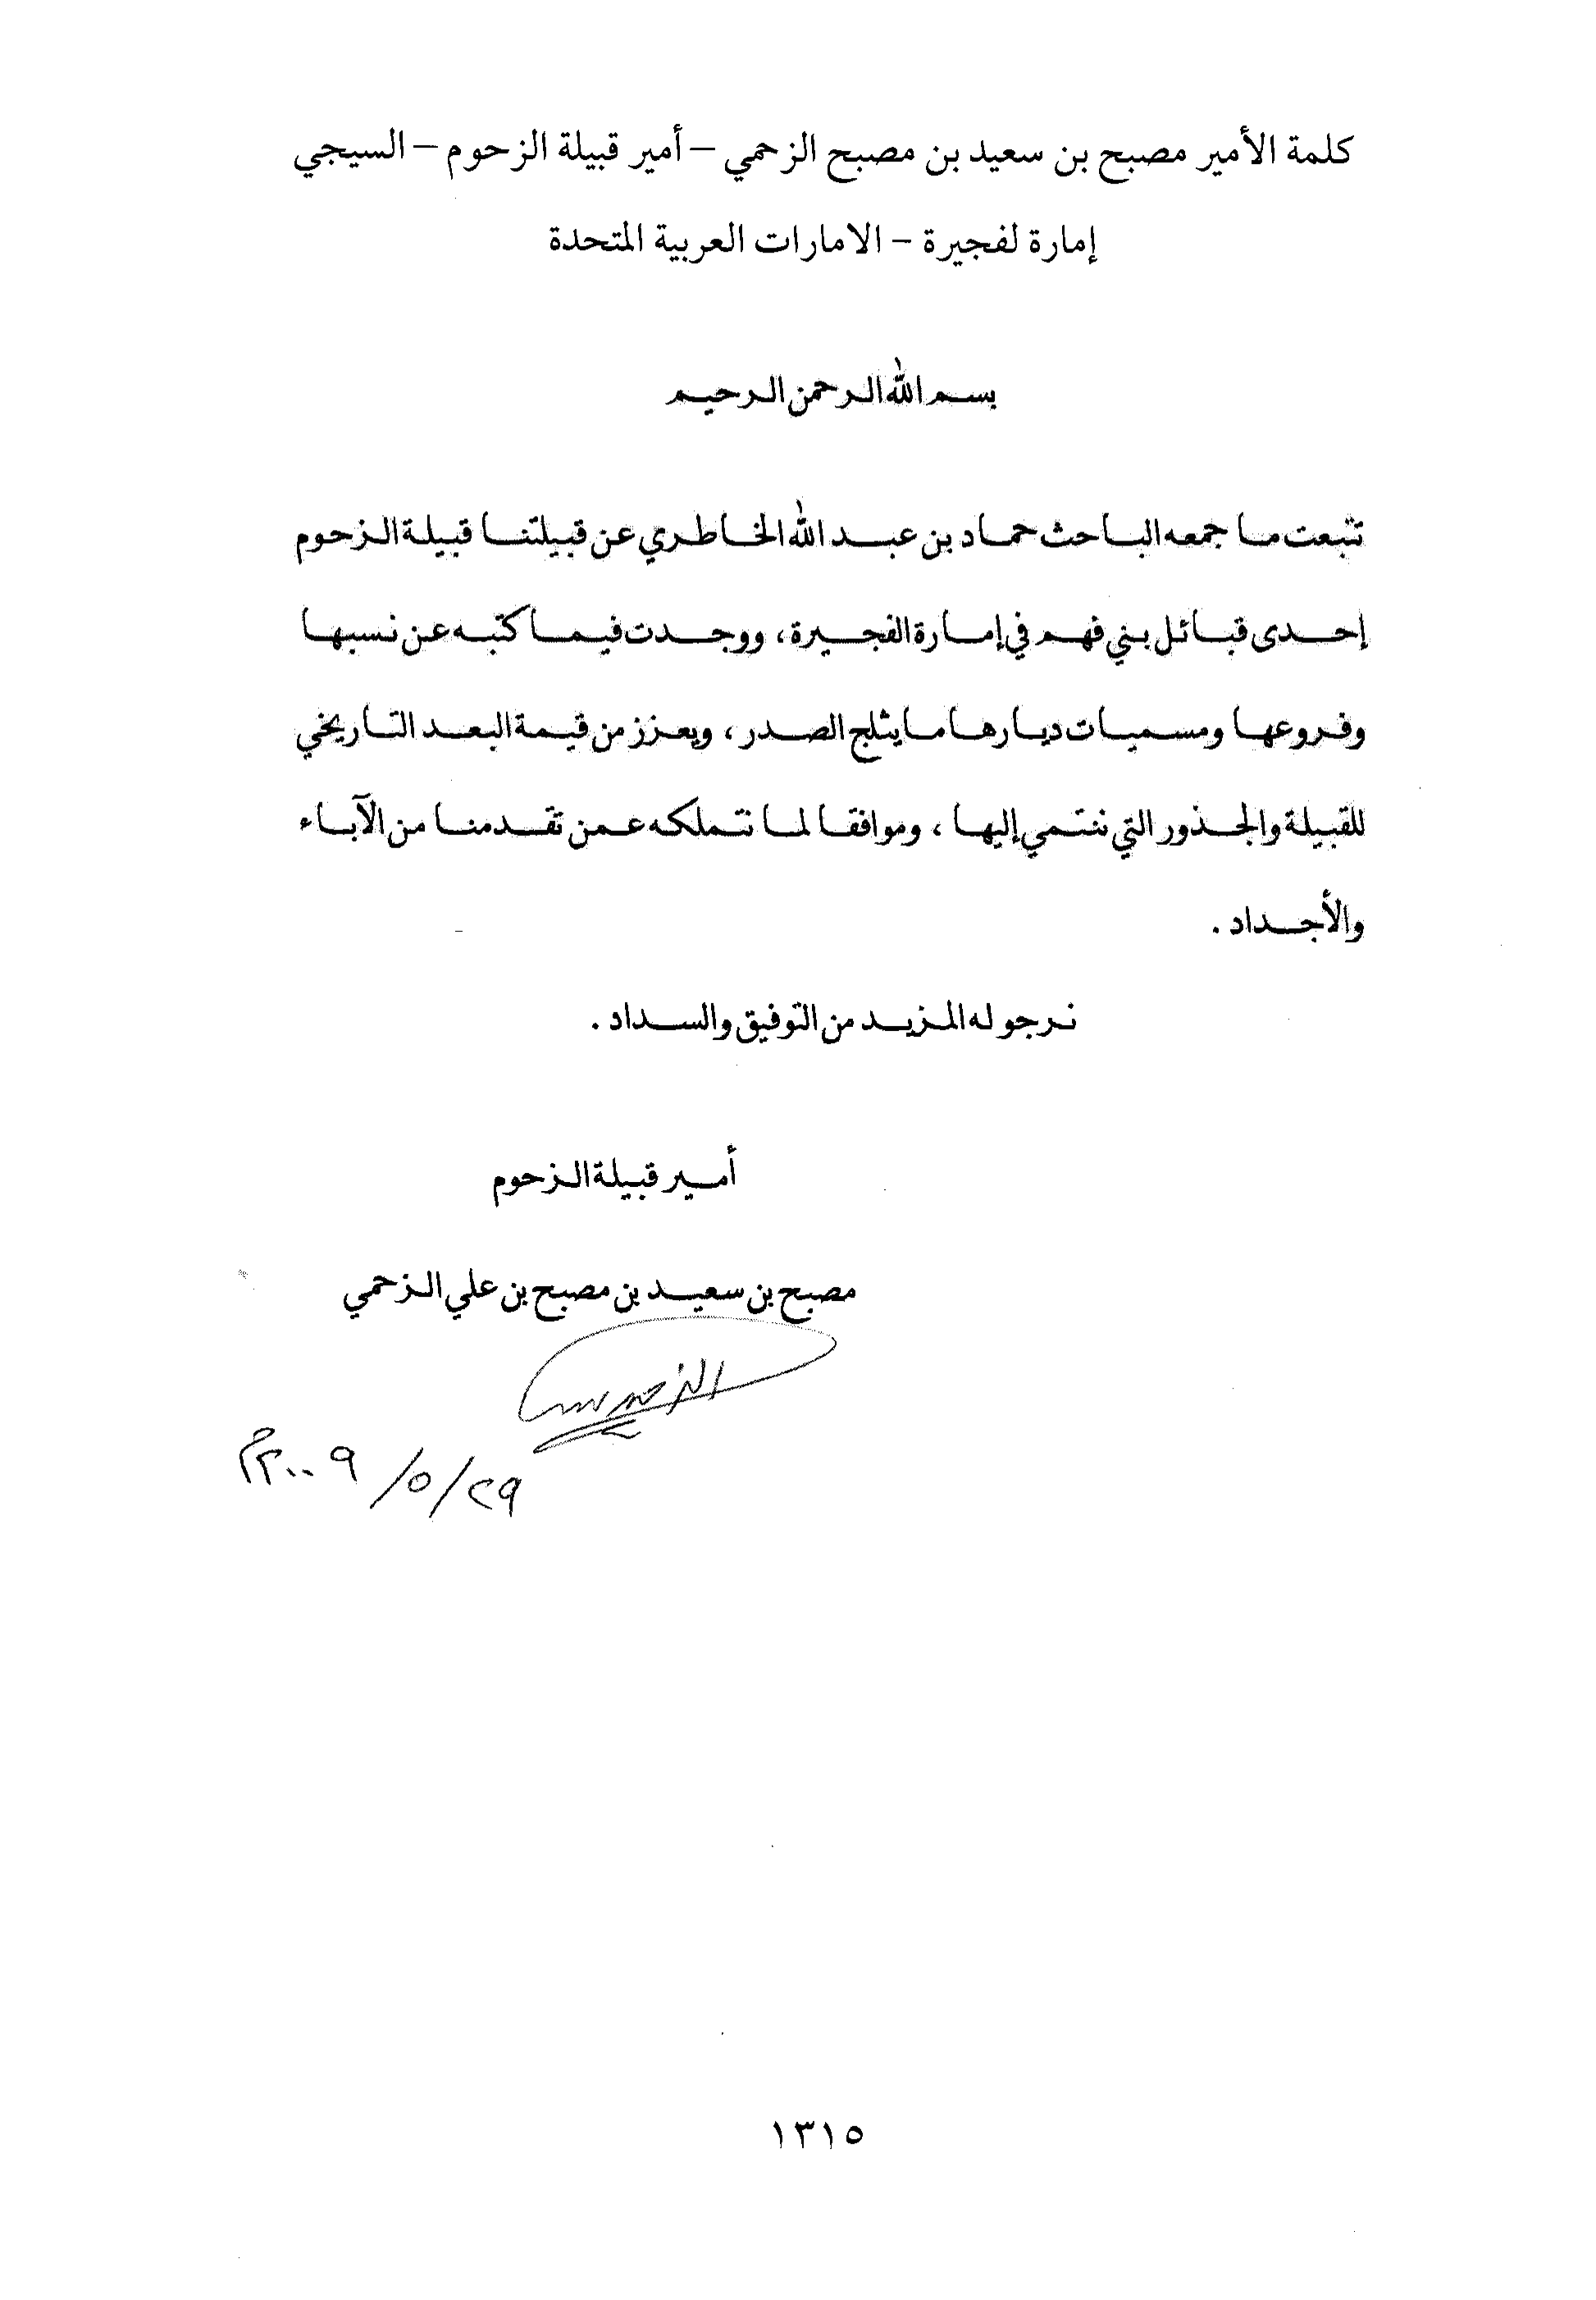 كلمة الأمير مصبح بن سعيد بن مصبح الزحمي – أمير قبيلة الزحوم – السيجي
إمارة لفجيرة – الامارات العربية المتحدة
بسم الله الرحمن الرحيم
تتبعت ما جمعه الباحث حماد بن عبد الله الخاطري عن قبيلتنا قبيلة الزحوم
إحدى قبائل بني فهم في إمارة الفجيرة، ووجدت فيما كتبه عن نسبها
وفروعها ومسميات ديارها ما يثلج الصدر، ويعزز من قيمة البعد التاريخي
للقبيلة والجذور التي ننتمي إليها، وموافقا لما نتملكه عمن تقدمنا من الآباء
والأجداد.
نرجو له المزيد من التوفيق والسداد.
أمير قبيلة الزحوم
مصبح بن سعيد بن مصبح بن علي الزحمي
٢٩/٥/٢٠٠٩م
١٣١٥